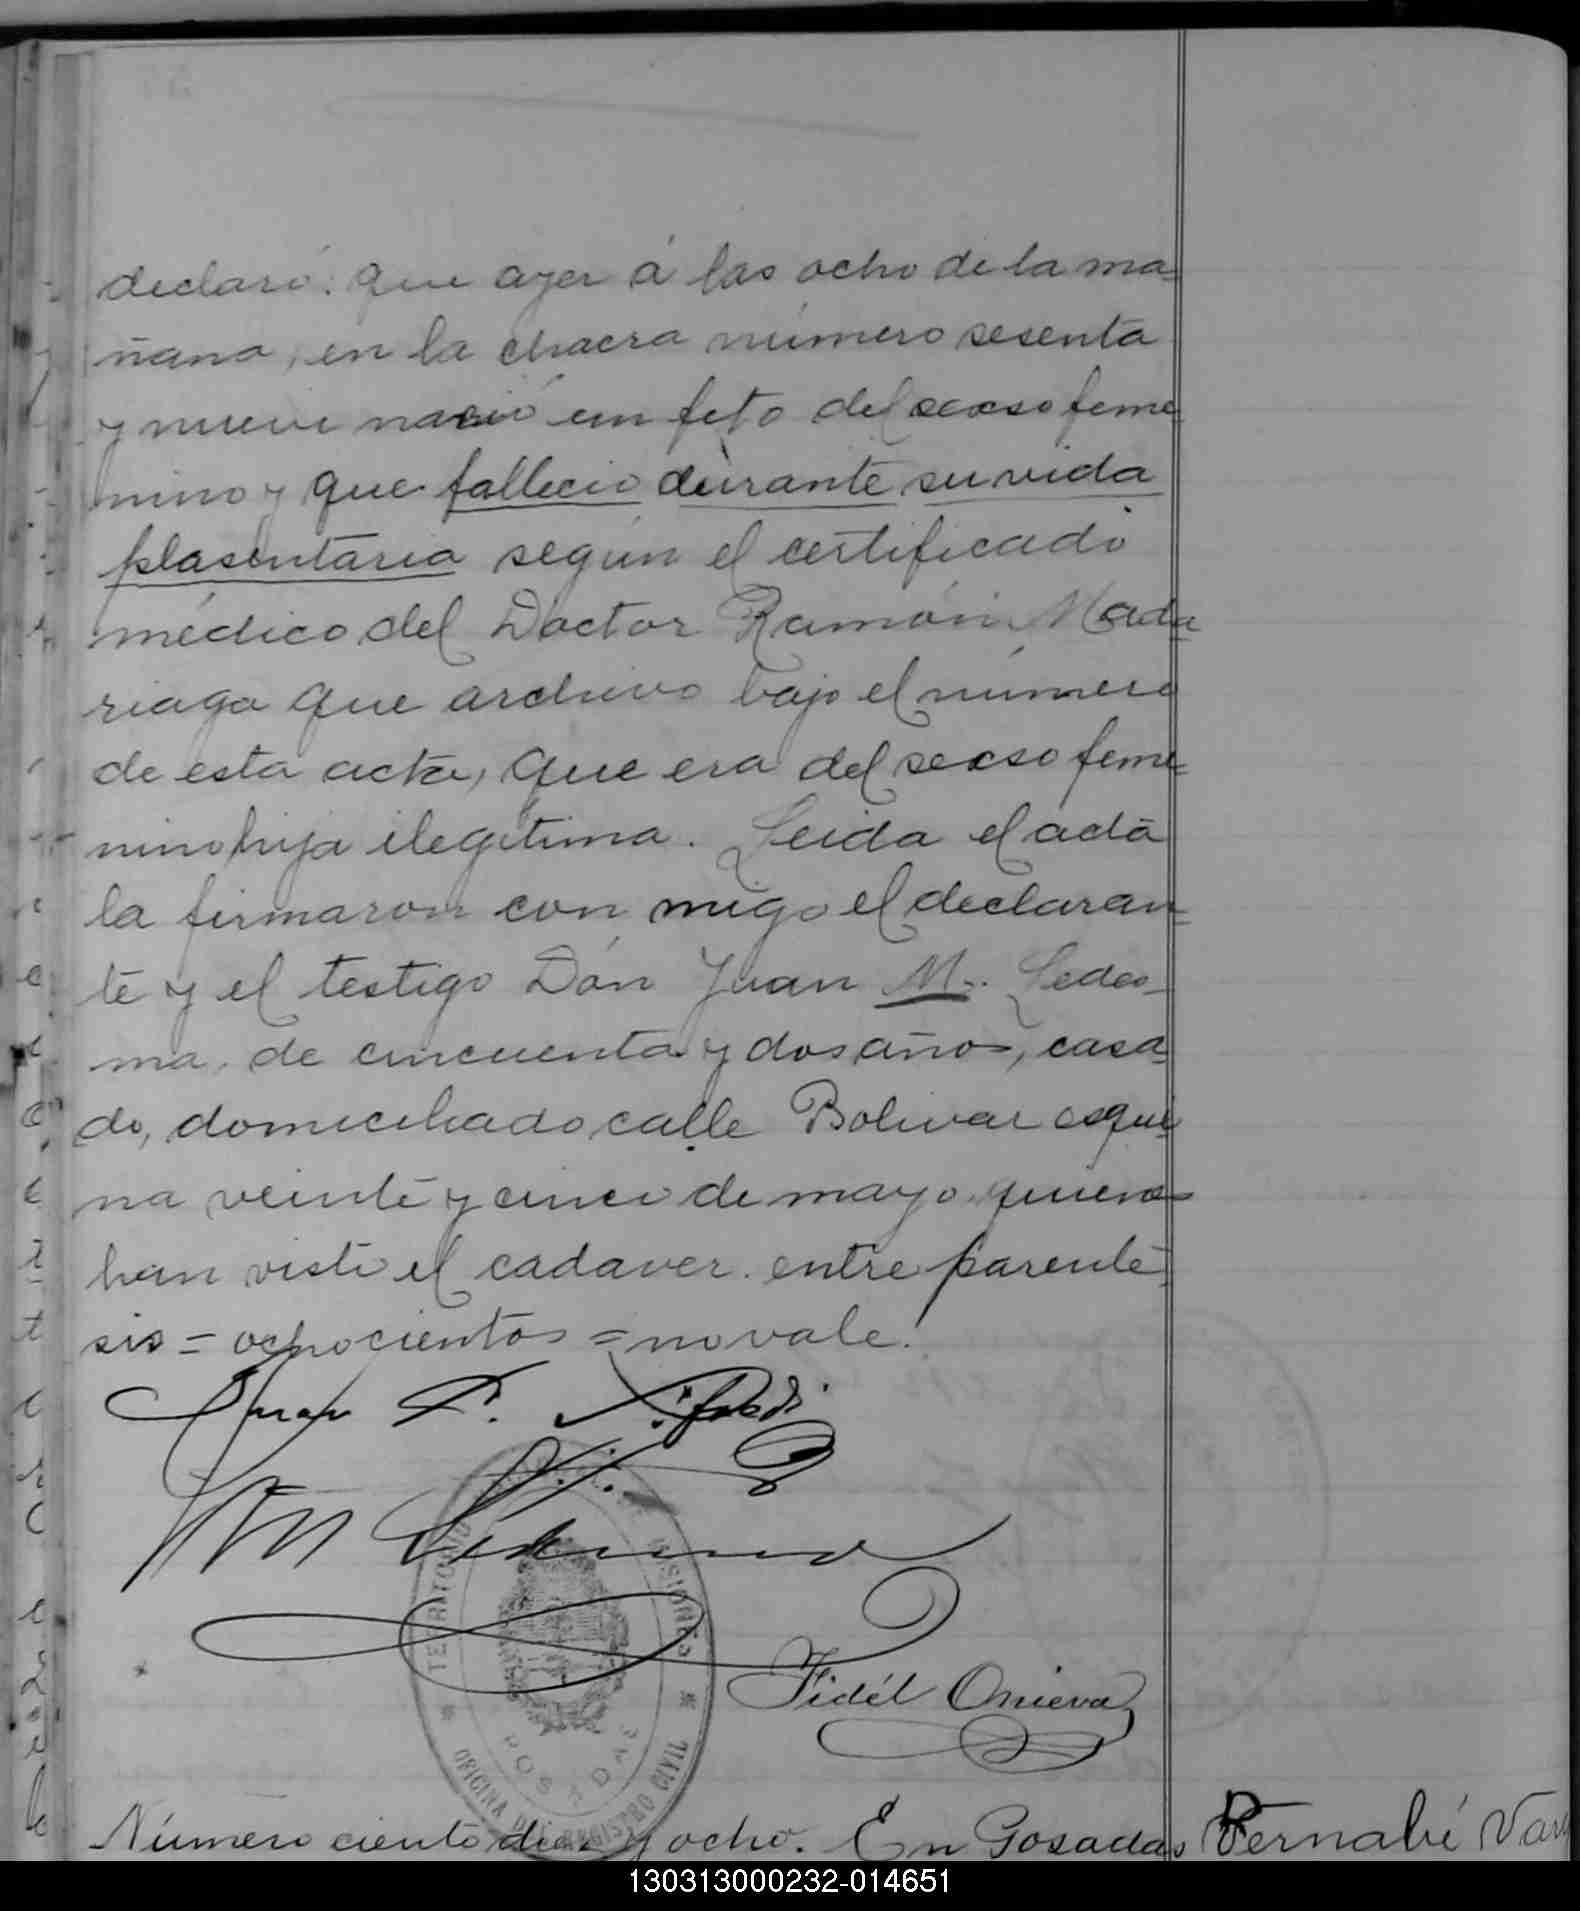 declaró: que ayer á las ocho de la ma=
ñana, en la chacra número sesenta
y nueve nació un feto del secso feme
nino y que fallecio durante su vida
plasentaria según el certificado
médico del Doctor Ramón Mada
riaga que archivo bajo el número
de esta acta, que era del secso feme=
nino hija ilegítima. Leida el acta
la firmaron con migo el declaran=
te y el testigo Dón Juan M. Ledes-
ma, de cincuenta y dos años, casa
do, domiciliado calle Bolivar esqui
na veinte y cinco de mayo quienes
han visto el cadaver. entre parente
sis = ochocientos = no vale.
Juan
M Ledesma
TERRITORIO DE MISIONES
POSADAS
OFICINA DEL REGISTRO CIVIL
Fidél Onieva
Número ciento diez y ocho. En Posadas Bernabé
130313000232-014651